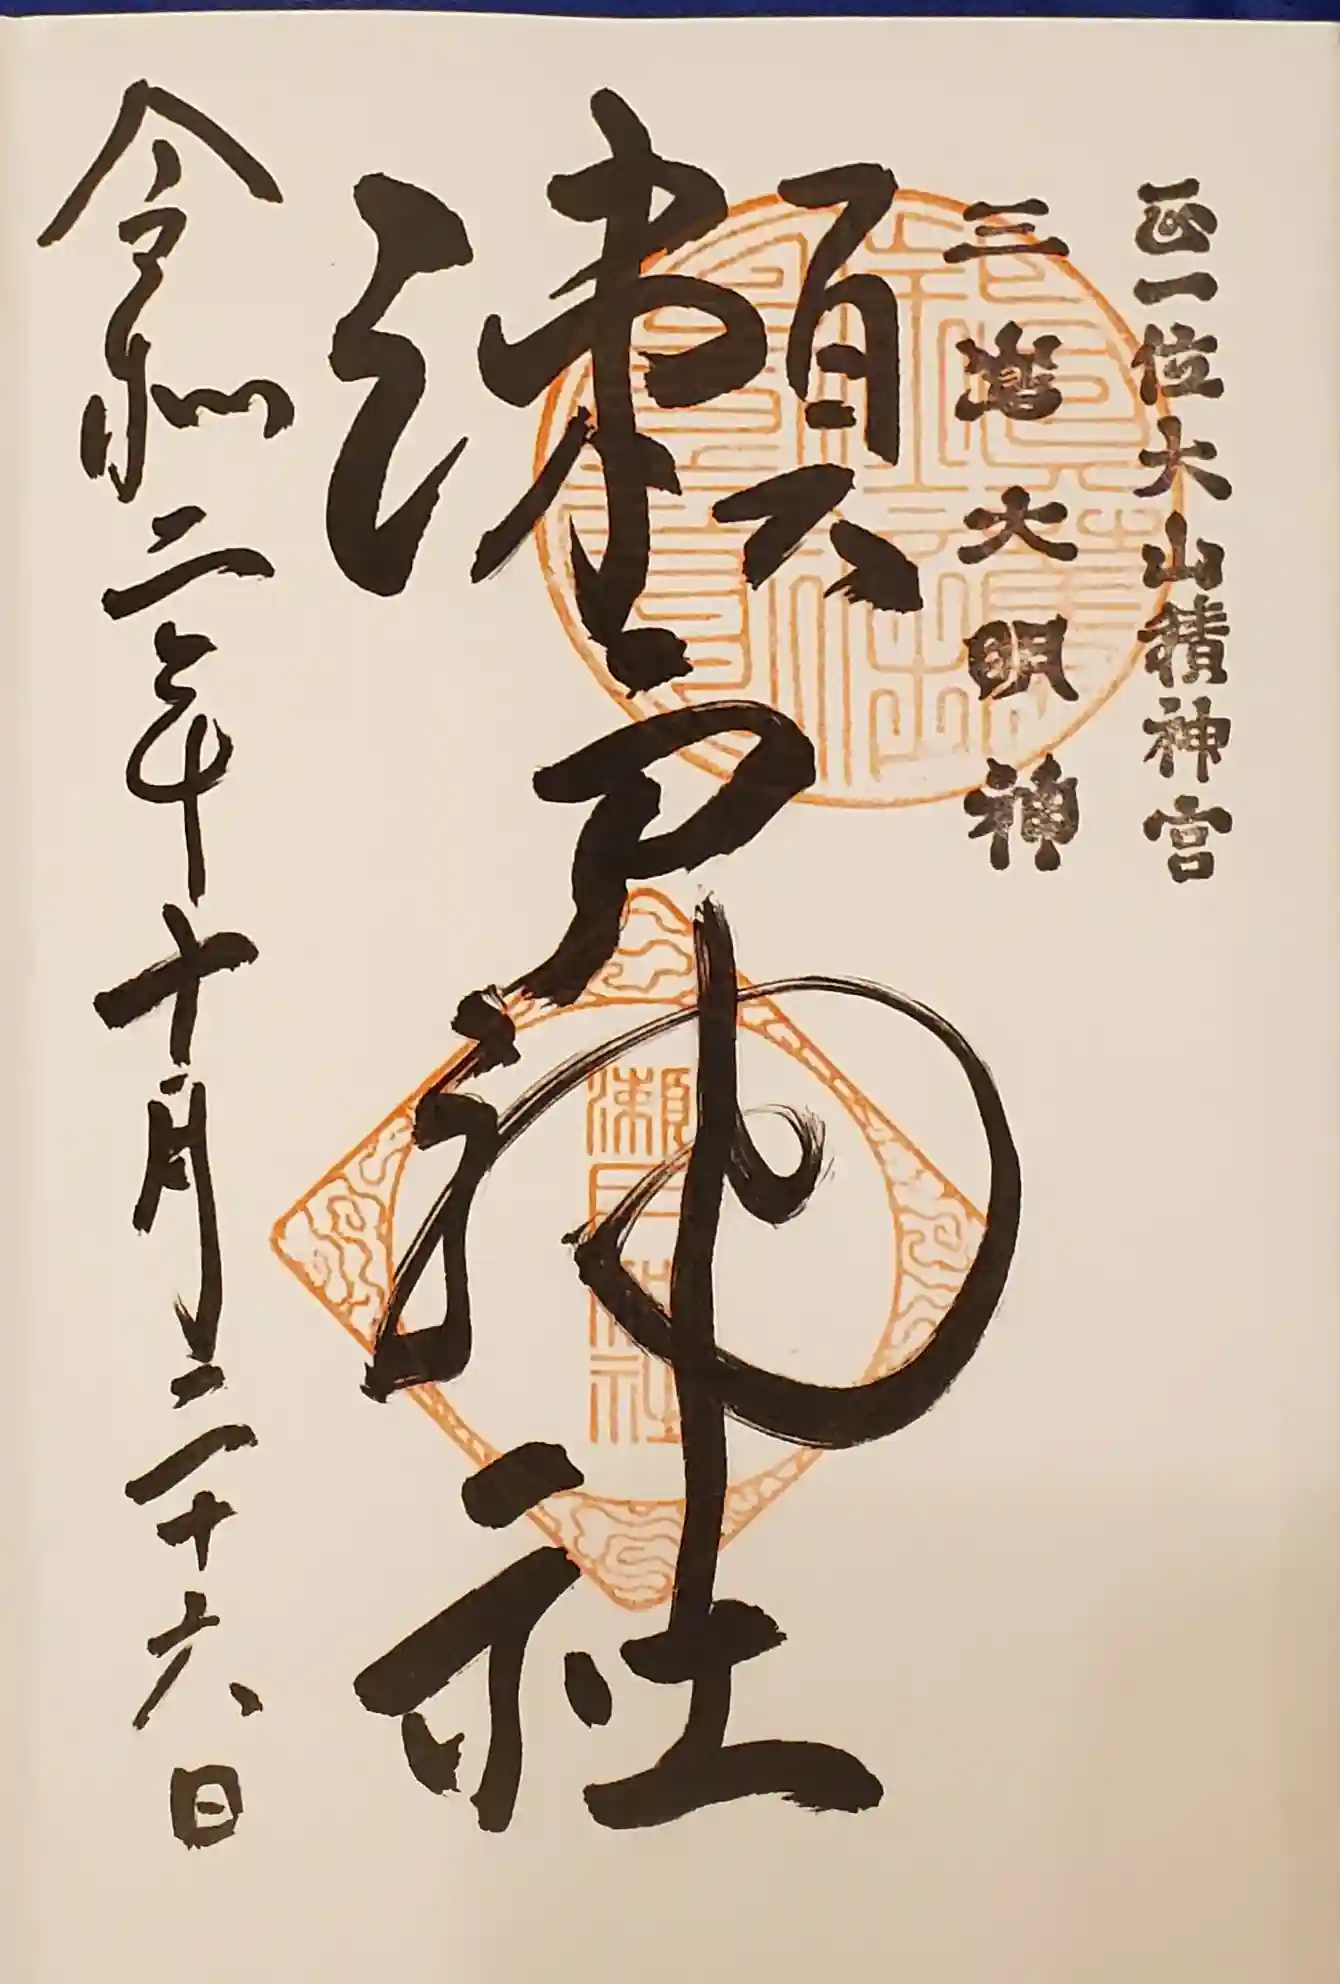 正一位大山積神宮
三嶌大明神
瀬戸神社
令和二年十月二十六日
瀬戸神社